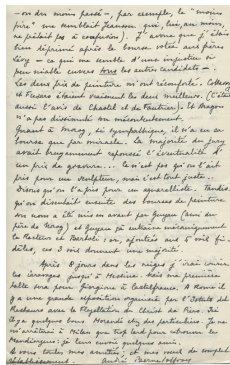 - ou du moins faste -, par exemple, le "moins
pire" me semblait Jeanson qui, lui, au moins,
ne prêtait pas à confusion). J'avoue que j'étais
bien déprimé après la bourse volée aux frères
Lévy - ce qui me semble d'une injustice si
peu niable envers tous les autres candidats -.
Les deux prix de peinture m'ont réconforté.
et étaient vraiment les deux meilleurs (c'était
aussi l'avis de Chastel et de Fautrier). Et Aragon
n'a pas dissimulé son mécontentement.
Quant à si sympathique, il n'a eu sa
bourse que par miracle. La majorité du jury
avait bruyamment repoussé l'éventualité d'
un prix de gravure. Ce n'est pas qu'on l'ait
pris pour un sculpteur, mais c'est tout juste.
Disons qu'on l'a pris pour un aquarelliste. Tandis
qu'on discutait ensuite des bourses de peinture
son nom a été mis en avant par Guyau (ami du
père de ) et Guyau a entraîné mécaniquement
le Recteur et : or, ajoutés aux 5 voix fi-
dèles, ces 3 voix donnent une majorité.
Après 8 jours dans les neiges j'irai courir
les jusqu'à Messine. Mais ma première
halte sera pour Giorgione à Castelfranco. A Rome il
y a une grande exposition organisée par l'Istituto del
Restauro avec la Flagellation du Christ de Piero. J'irai
voir quelques bons Morandi chez des particuliers. Je ne
m'arrêterai à Milan que trop tard pour retrouver les
Mendiengues : je leur écris quelques amis.
A vous toutes mes amitiés, et mes vœux de complet
rétablissement. André Berne Joffroy